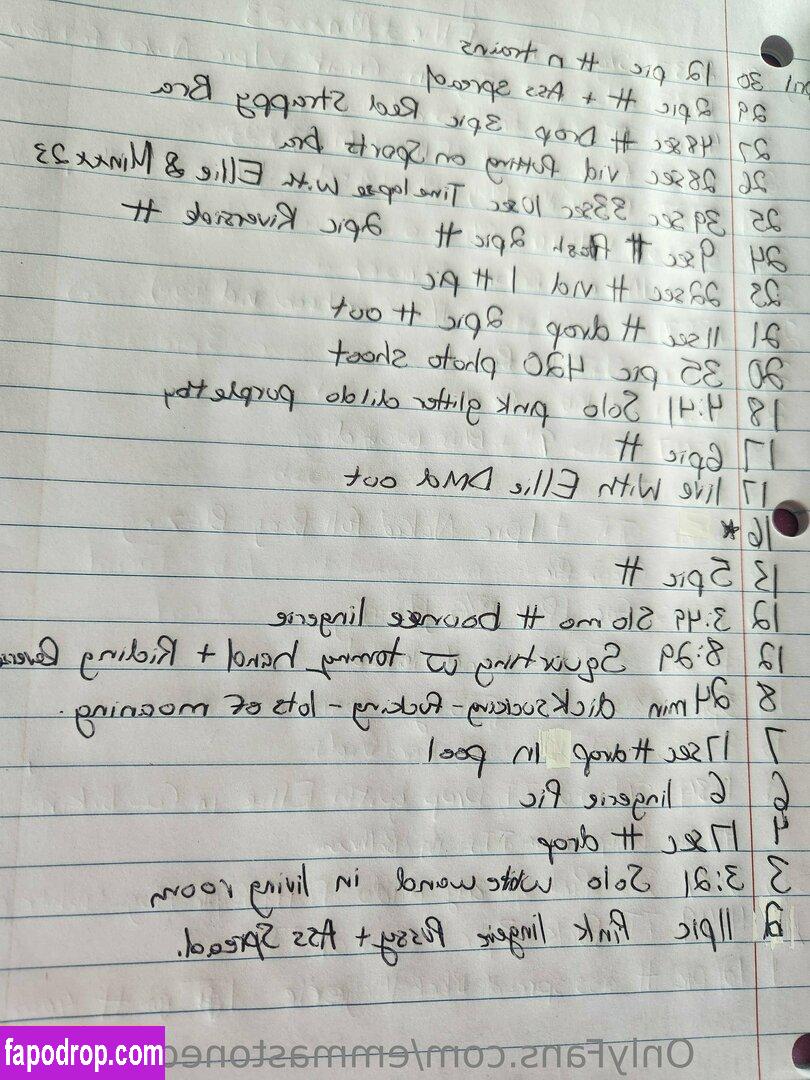 Jul 30 12 pic # n trains
29 2pic # + Ass Spread
27 48sec # Drop 3pic Red Strappy Bra
26 28sec vid Putting on Sports Bra
25 39 sec 33sec 10sec Time lapse With Ellie & Minxx23
24 9sec # flash 2pic # 2pic Riverside #
22 22sec # vid 1 # pic
21 11sec # drop 2pic # out
20 35 pic 420 photo shoot
18 4:41 Solo pink glitter dildo purple toy
17 6pic #
17 live With Ellie DMd out
16 *
13 5pic #
12 3:49 Slo mo # bounce lingerie
12 8:29 Squirting tommy hand + Riding Revers
8 24 min dick sucking - fucking - lots of moaning.
7 17sec #drop in pool
6 6 lingerie Pic
4 17sec # drop
3 3:21 Solo wand in living room
2 11pic Pink lingerie Pussy + Ass Spread.
OnlyFans.com/emmastoned
fapodrop.com